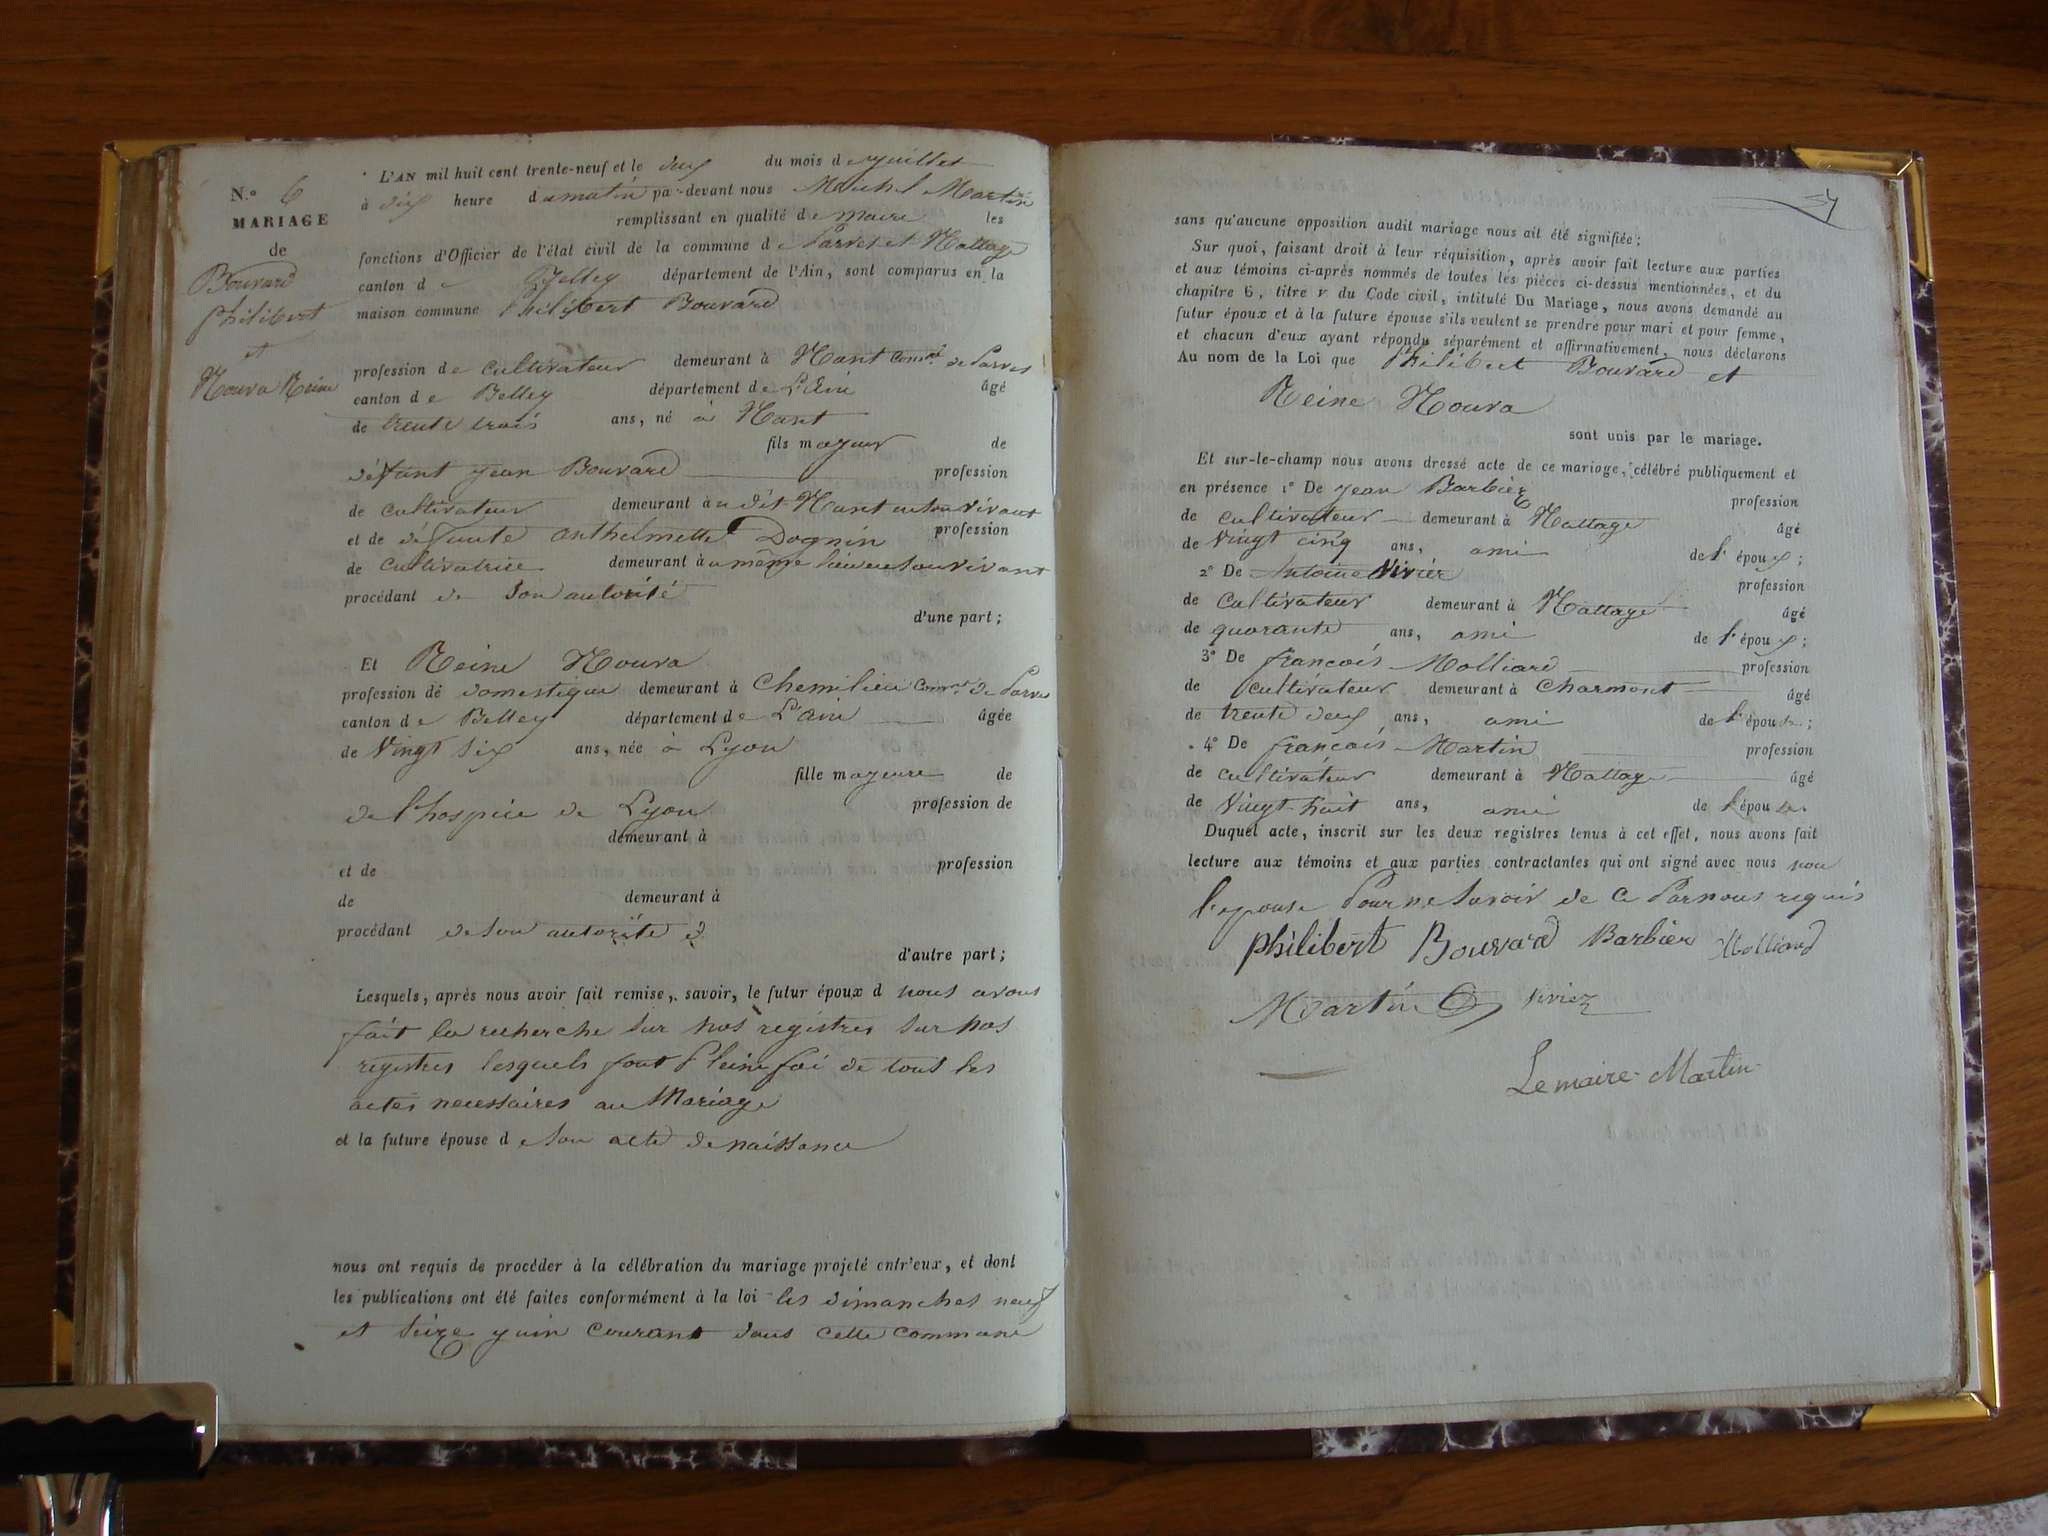 N.° 6
MARIAGE
de
Bouvard
philibert
et
Noura Reine
L'AN mil huit cent trente-neuf et le deux du mois de juillet
à dix heure du matin par-devant nous Michel Martin
remplissant en qualité de maire les
fonctions d'Officier de l'état civil de la commune de Parves et Nattage
canton de Belley département de l'Ain, sont comparus en la
maison commune Philibert Bouvard
profession de cultivateur demeurant à Nant Comne de Parves
canton de Belley département de L'Ain âgé
de trente trois ans, né à Nant
fils mayeur de
défunt jean Bouvard profession
de cultivateur demeurant au dit Nant en son vivant
et de défunte anthelmette Dognin profession
de cultivatrice demeurant au même lieu en son vivant
procédant de son autorité
d'une part;
Et Reine Noura
profession de domestique demeurant à Chemilieu Comne de Parves
canton de Belley département de L'Ain âgée
de Vingt six ans, née à Lyon
fille mayeure de
de l'hospice de Lyon profession de
demeurant à
et de profession
de demeurant à
procédant de son autorité
d'autre part;
Lesquels, après nous avoir fait remise, savoir, le futur époux d nous avons
fait la recherche sur nos registres sur nos
registres lesquels font Pleine foi de tout les
actes necessaires au Mariage
et la future épouse de son acte de naissance
nous ont requis de procéder à la célébration du mariage projeté entr'eux, et dont
les publications ont été faites conformément à la loi les dimanches neuf
et seize juin courant dans cette commune
sans qu'aucune opposition audit mariage nous ait été signifiée;
Sur quoi, faisant droit à leur réquisition, après avoir fait lecture aux parties
et aux témoins ci-après nommés de toutes les pièces ci-dessus mentionnées, et du
chapitre 6, titre v du Code civil, intitulé Du Mariage, nous avons demandé au
futur époux et à la future épouse s'ils veulent se prendre pour mari et pour femme,
et chacun d'eux ayant répondu séparément et affirmativement, nous déclarons
Au nom de la Loi que Philibert Bouvard et
Reine Noura
sont unis par le mariage.
Et sur-le-champ nous avons dressé acte de ce mariage, célébré publiquement et
en présence 1° De jean Barbier profession
de cultivateur demeurant à Nattage âgé
de Vingt cinq ans, ami de l'époux;
2° De Antoine Vivier profession
de Cultivateur demeurant à Nattage âgé
de quarante ans, ami de l'époux;
3° De françois Molliard profession
de cultivateur demeurant à Charmont âgé
de trente deux ans, ami de l'épouse;
4° De françois Martin profession
de cultivateur demeurant à Nattage âgé
de Vingt-huit ans, ami de l'épouse.
Duquel acte, inscrit sur les deux registres tenus à cet effet, nous avons fait
lecture aux témoins et aux parties contractantes qui ont signé avec nous non
l'epouse Pour ne savoir de ce Par nous requis
philibert Bouvard Barbier Molliard
Martin viviez
Le maire Martin